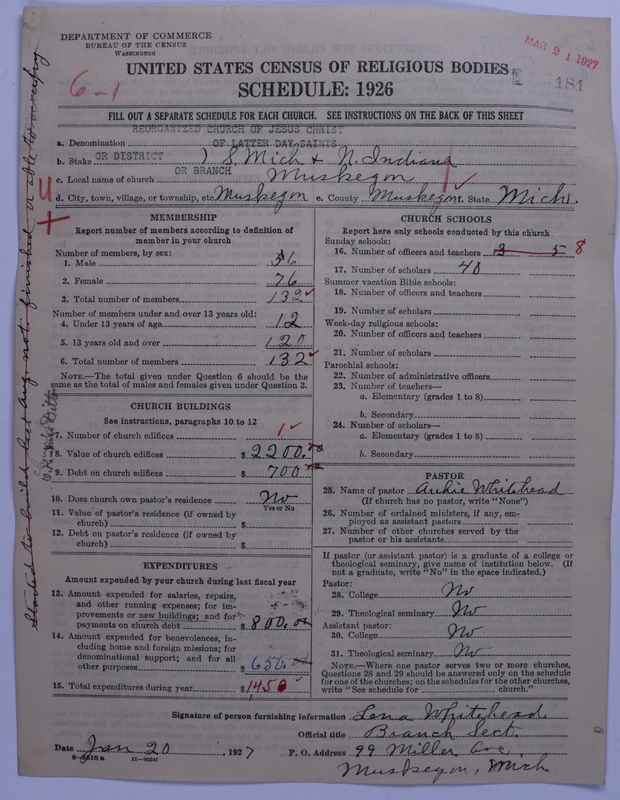 DEPARTMENT OF COMMERCE
BUREAU OF THE CENSUS
WASHINGTON
MAR 21 1927
181
6-1
UNITED STATES CENSUS OF RELIGIOUS BODIES
SCHEDULE: 1926
FILL OUT A SEPARATE SCHEDULE FOR EACH CHURCH. SEE INSTRUCTIONS ON THE BACK OF THIS SHEET
REORGANIZED CHURCH OF JESUS CHRIST
a. Denomination OF LATTER DAY SAINTS
b. Stake OR DISTRICT ) S. Mich & N. Indiana
OR BRANCH
c. Local name of church Muskegon
d. City, town, village, or township, etc. Muskegon e. County Muskegon f. State Mich.
MEMBERSHIP
Report number of members according to definition of member in your church
Number of members, by sex:
1. Male 56
2. Female 76
3. Total number of members 132
Number of members under and over 13 years old:
4. Under 13 years of age 12
5. 13 years old and over 120
6. Total number of members 132
NOTE.—The total given under Question 6 should be the
same as the total of males and females given under Question 3.
CHURCH BUILDINGS
See instructions, paragraphs 10 to 12
7. Number of church edifices 1
8. Value of church edifices $ 2200.00
9. Debt on church edifices $ 700
10. Does church own pastor's residence No
Yes or No
11. Value of pastor's residence (if owned by
church) $
12. Debt on pastor's residence (if owned by
church) $
EXPENDITURES
Amount expended by your church during last fiscal year
13. Amount expended for salaries, repairs,
and other running expenses; for im-
provements or new buildings; and for
payments on church debt $ 800.00
14. Amount expended for benevolences, in-
cluding home and foreign missions; for
denominational support; and for all
other purposes $ 650.00
15. Total expenditures during year $ 1450
CHURCH SCHOOLS
Report here only schools conducted by this church
Sunday schools:
16. Number of officers and teachers 3 5 8
17. Number of scholars 40
Summer vacation Bible schools:
18. Number of officers and teachers
19. Number of scholars
Week-day religious schools:
20. Number of officers and teachers
21. Number of scholars
Parochial schools:
22. Number of administrative officers
23. Number of teachers—
a. Elementary (grades 1 to 8)
b. Secondary
24. Number of scholars—
a. Elementary (grades 1 to 8)
b. Secondary
PASTOR
25. Name of pastor Archie Whitehead
(If church has no pastor, write "None")
26. Number of ordained ministers, if any, em-
ployed as assistant pastors
27. Number of other churches served by the
pastor or his assistants
If pastor (or assistant pastor) is a graduate of a college or
theological seminary, give name of institution below. (If
not a graduate, write "No" in the space indicated.)
Pastor:
28. College No
29. Theological seminary No
Assistant pastor:
30. College No
31. Theological seminary No
NOTE.—Where one pastor serves two or more churches,
Questions 28 and 29 should be answered only on the schedule
for one of the churches; on the schedules for the other churches,
write "See schedule for church."
Signature of person furnishing information Lena Whitehead
Official title Branch Sect.
Date Jan 20, 1927 P. O. Address 99 Miller Ave,
11—00347
Muskegon, Mich
Started to build last Aug. not finished